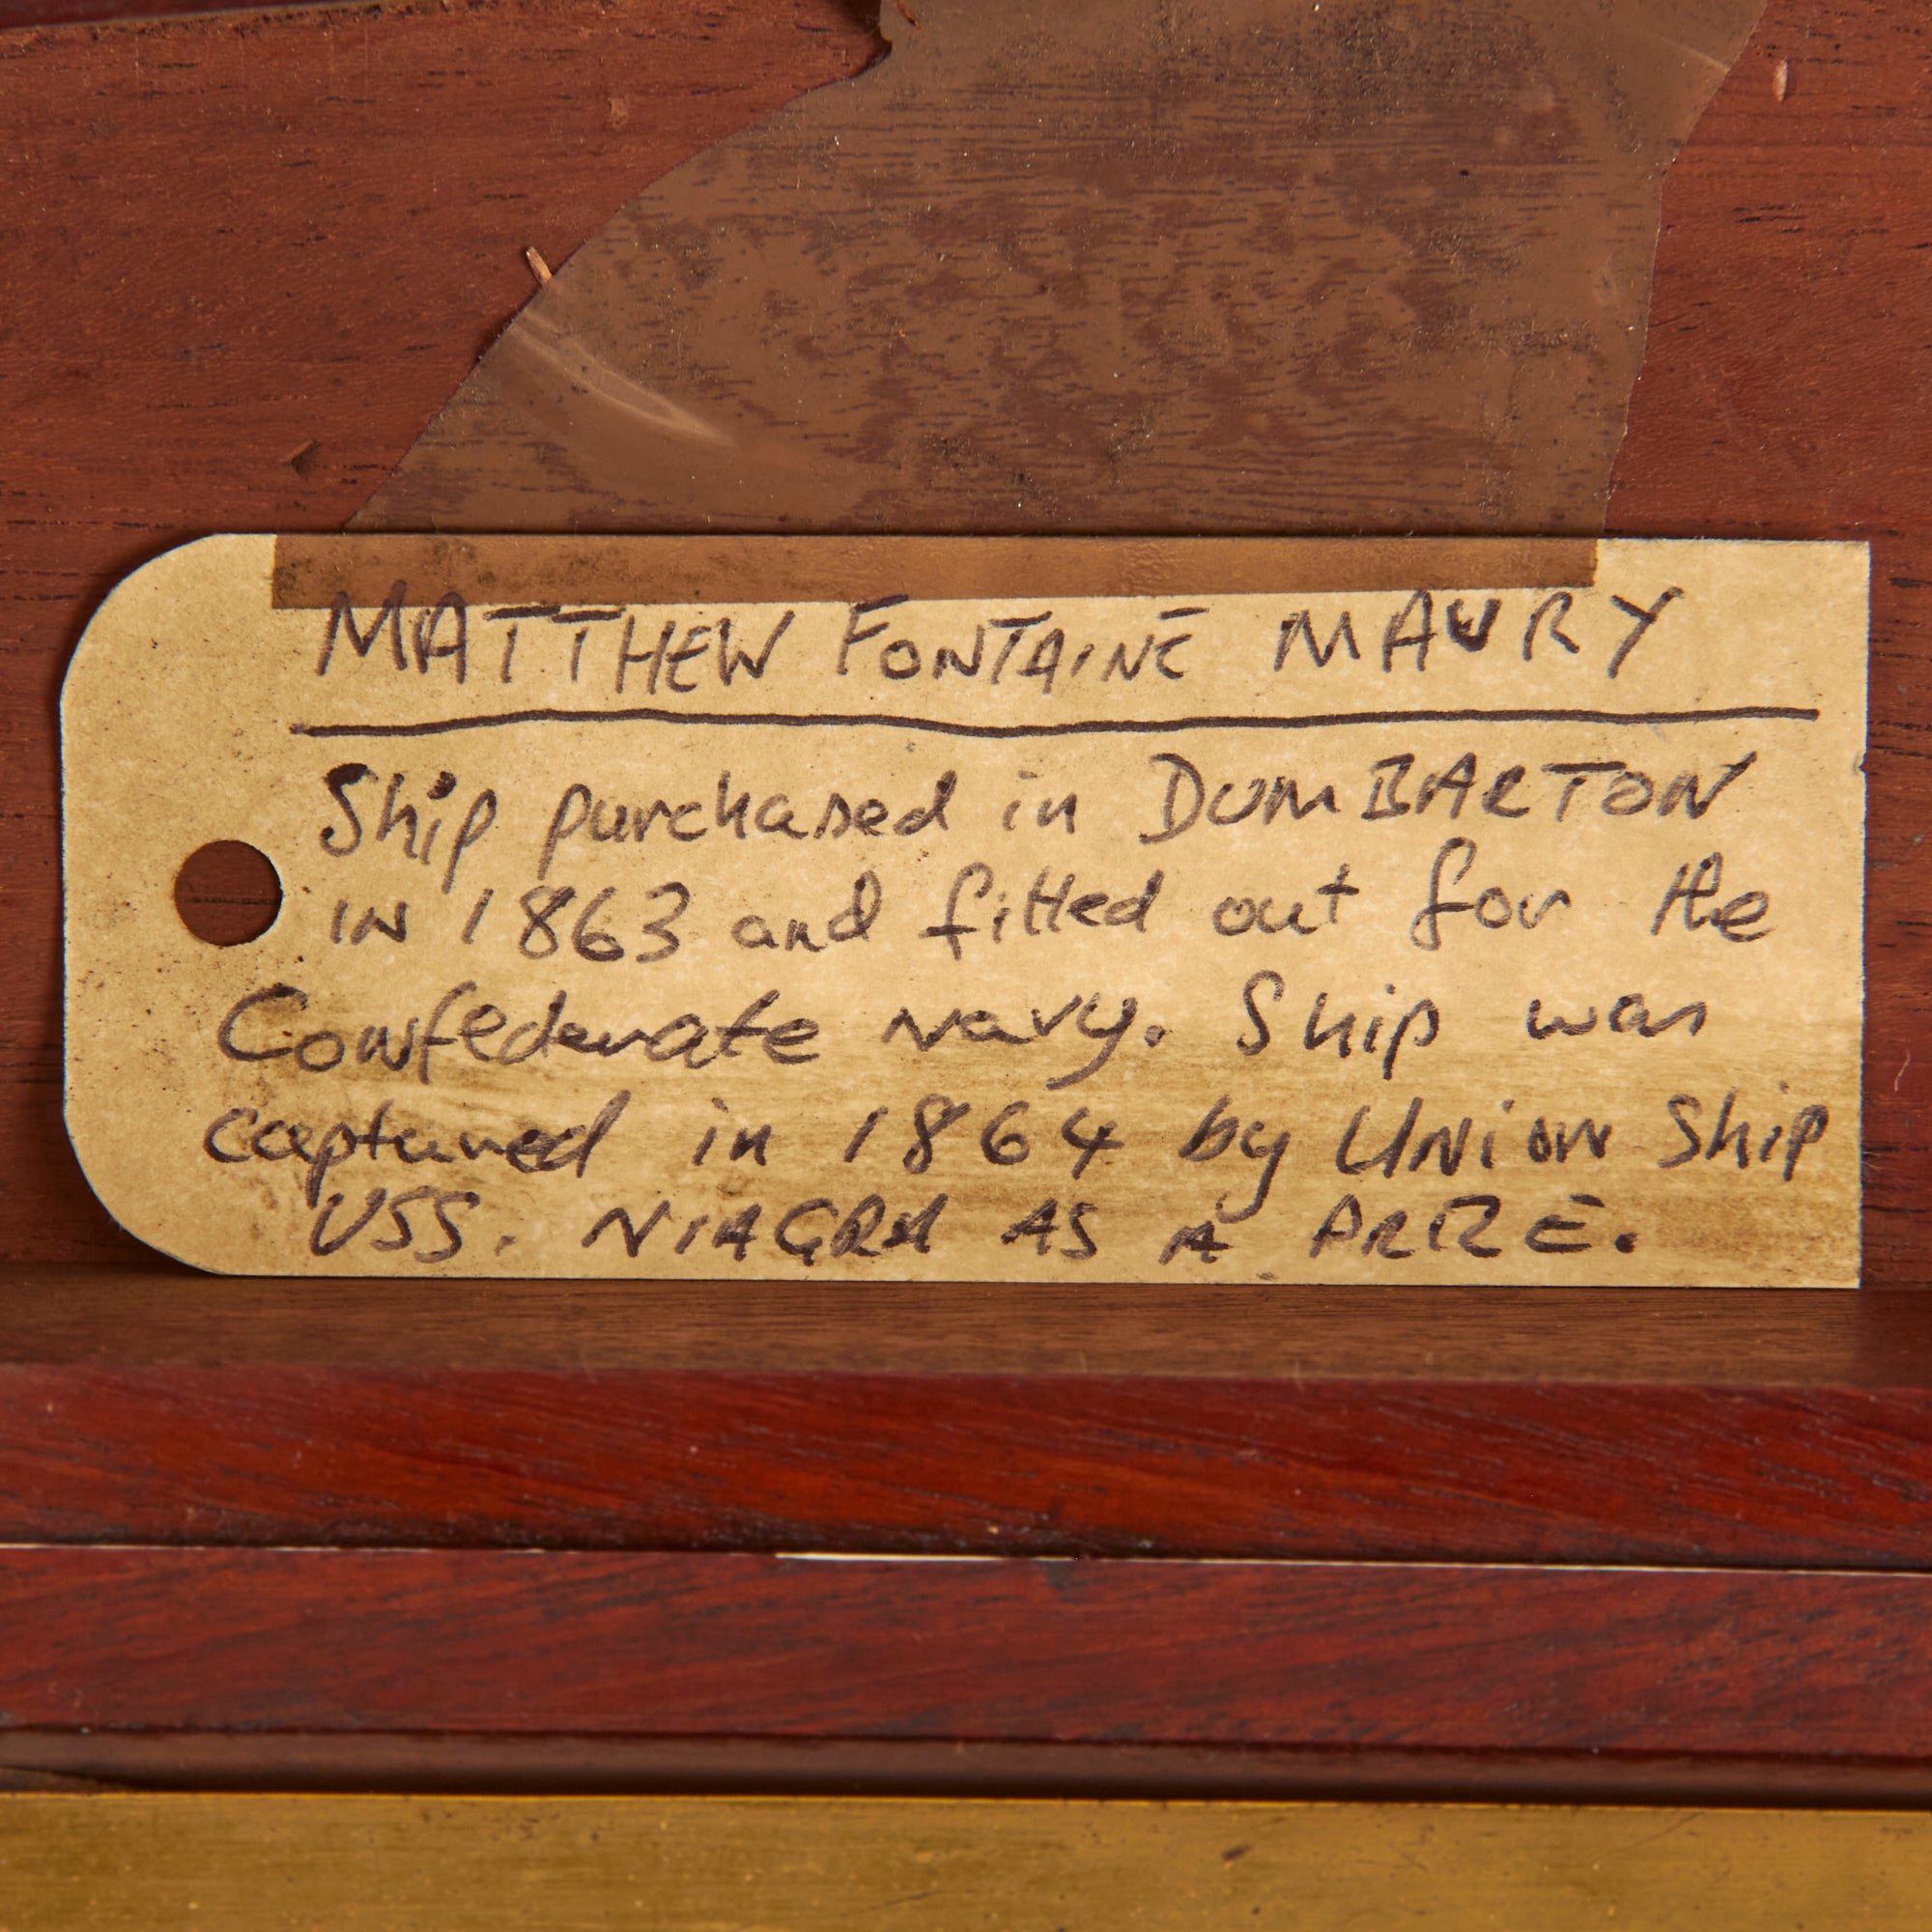 MATTHEW FONTAINE MAURY
Ship purchased in DUMBARTON
IN 1863 and fitted out for the
Confederate navy. Ship was
captured in 1864 by UNION Ship
USS. NIAGRA AS A PRIZE.